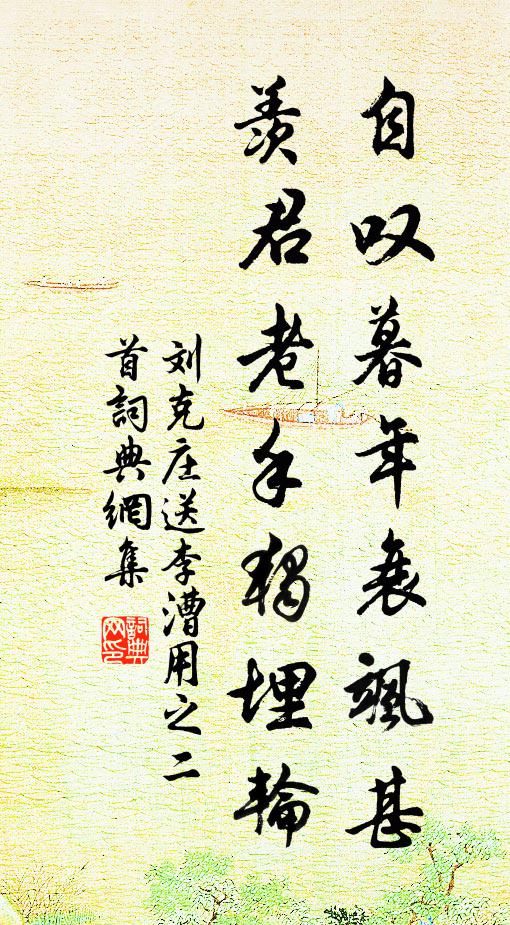 自叹暮年衰飒甚
羡君老手独埋輪
刘克庄送李漕用之二
首詞典網集
詞典网印